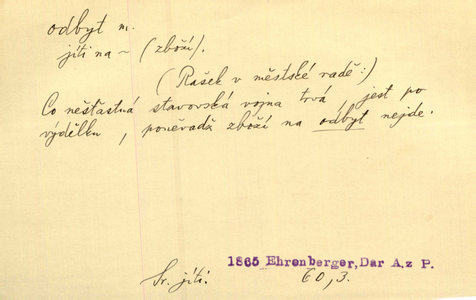 odbyt m.
jíti na ~ (zboží).
(Rašek v městské radě:)
Co nešťastná stavovská vojna trvá jest po
výdělku, poněvadž zboží na odbyt nejde.
1865 Ehrenberger, Dar A. z P.
Sr. jíti. 60,3.